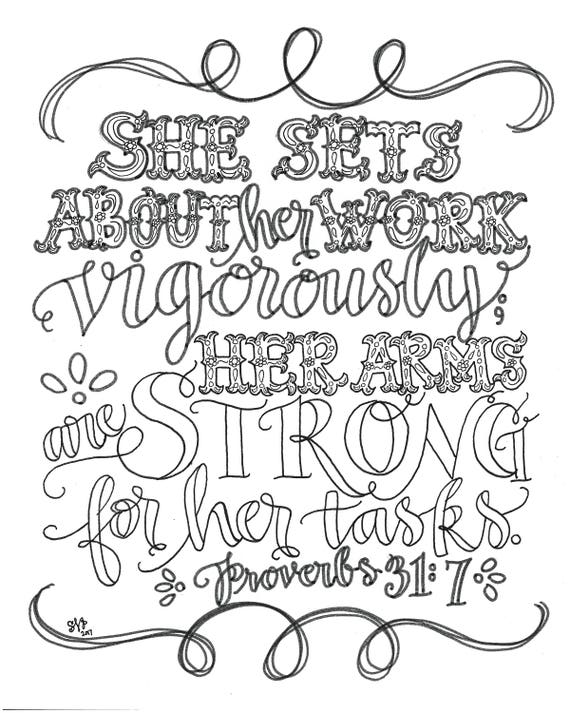 SHE SETS
ABOUT her WORK
vigorously;
HER ARMS
are STRONG
for her tasks.
Proverbs 31:7
SNP
2017